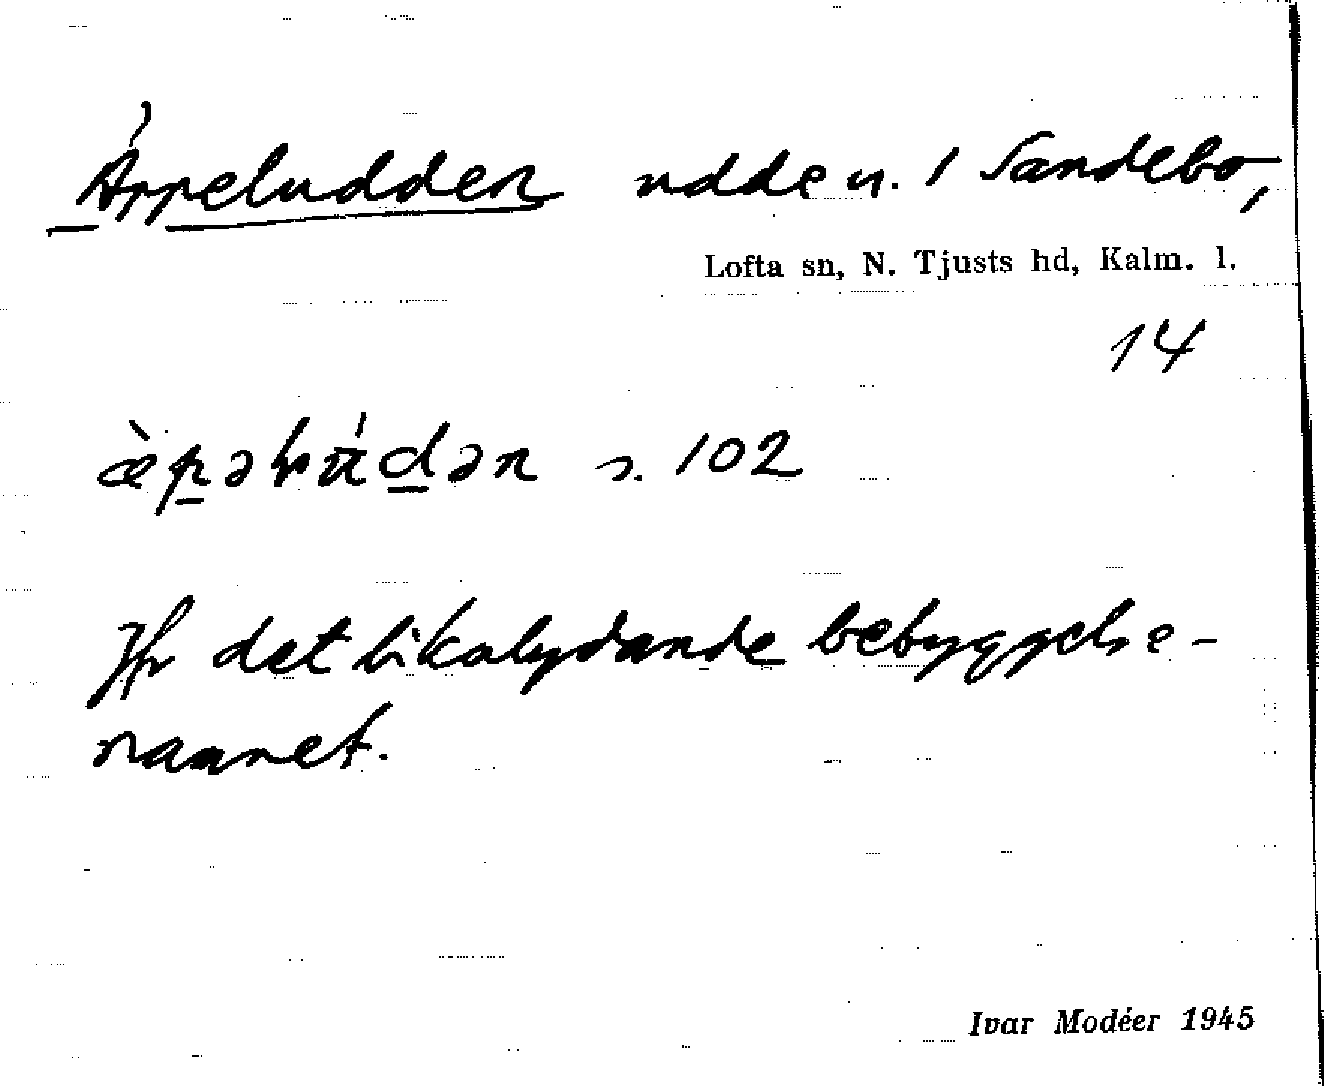 Äppeludden udde u. 1 Sandebo,
Lofta sn, N. Tjusts hd, Kalm. l.
14
s. 102
Jfr det likalydande bebyggelse-
namnet.
Ivar Modéer 1945